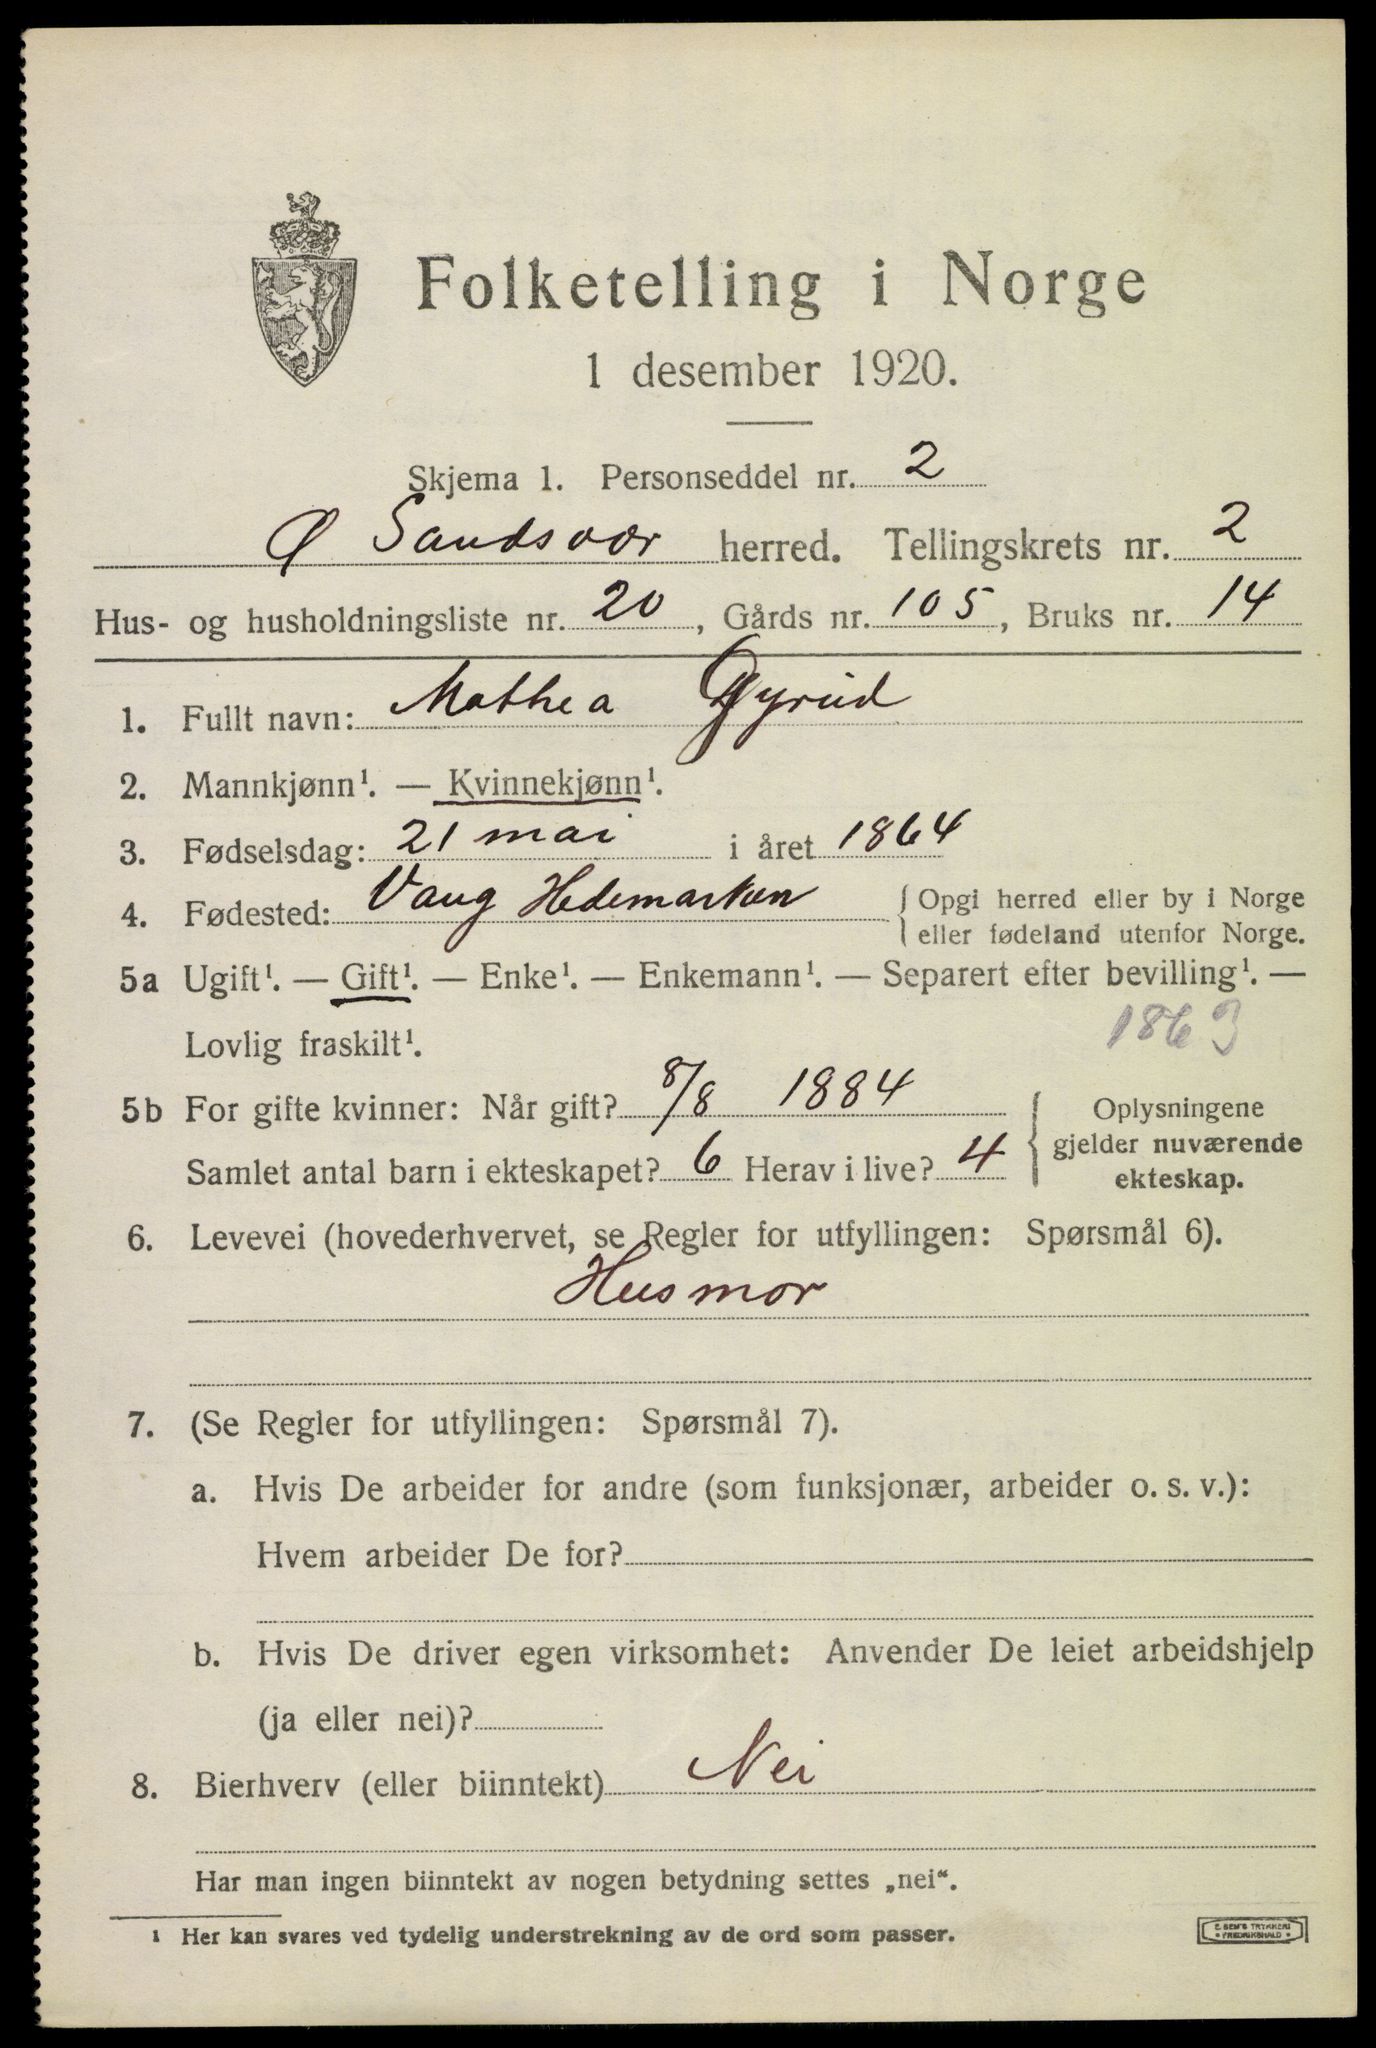 Folketelling i Norge
1 desember 1920.
Skjema 1. Personseddel nr. 2
Ø Sandsvær herred. Tellingskrets nr. 2
Hus- og husholdningsliste nr. 20, Gårds nr. 105, Bruks nr. 14
1. Fullt navn: Mathea Gyrud
2. Mannkjønn¹. — Kvinnekjønn¹.
3. Fødselsdag: 21 mai i året 1864
4. Fødested: Vang Hedemarken { Opgi herred eller by i Norge
eller fødeland utenfor Norge.
5a Ugift¹. — Gift¹. — Enke¹. — Enkemann¹. — Separert efter bevilling¹. —
Lovlig fraskilt¹. 1863
5b For gifte kvinner: Når gift? 8/8 1884 { Oplysningene
gjelder nuværende
ekteskap.
Samlet antal barn i ekteskapet? 6 Herav i live? 4
6. Levevei (hovederhvervet, se Regler for utfyllingen: Spørsmål 6).
Husmor
7. (Se Regler for utfyllingen: Spørsmål 7).
a. Hvis De arbeider for andre (som funksjonær, arbeider o. s. v.):
Hvem arbeider De for?
b. Hvis De driver egen virksomhet: Anvender De leiet arbeidshjelp
(ja eller nei)?
8. Bierhverv (eller biinntekt) Nei
Har man ingen biinntekt av nogen betydning settes „nei“.
¹ Her kan svares ved tydelig understrekning av de ord som passer.
E. SEM'S TRYKKERI
• FREDRIKSHALD •